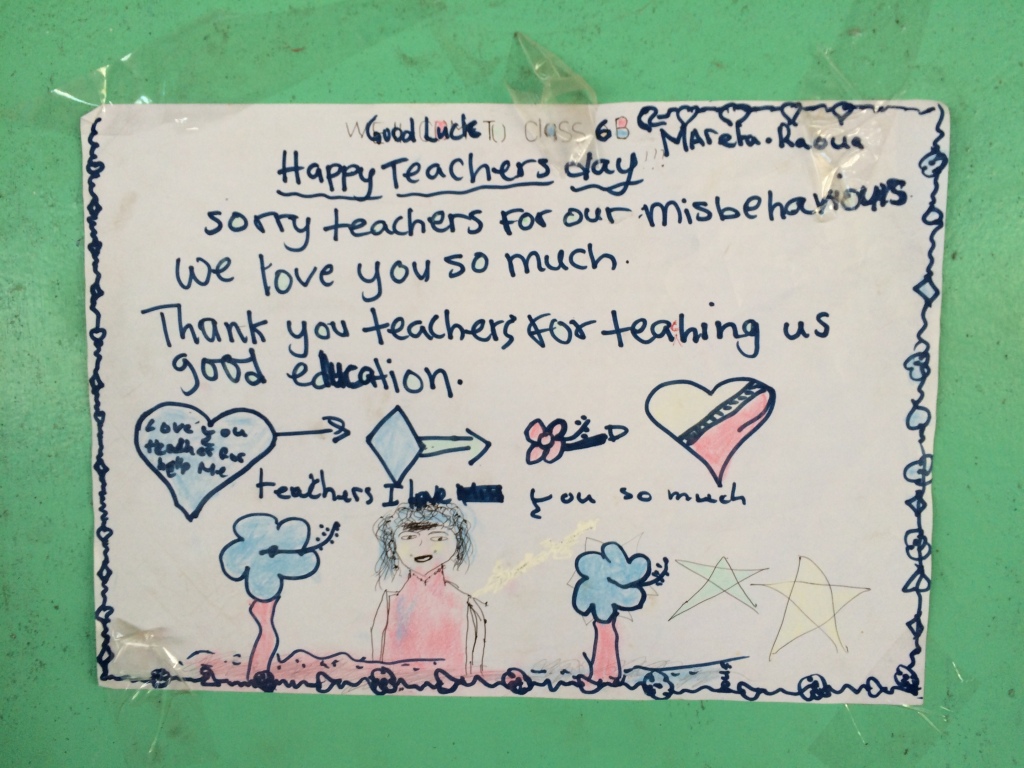 Good Luck To class 6B
Mareha.Raoua
Happy Teachers day !!!
sorry teachers for our misbehaviours
we love you so much.
Thank you teachers for teaching us
good education.
Love you
teacher for
help Me
teachers I love you so much